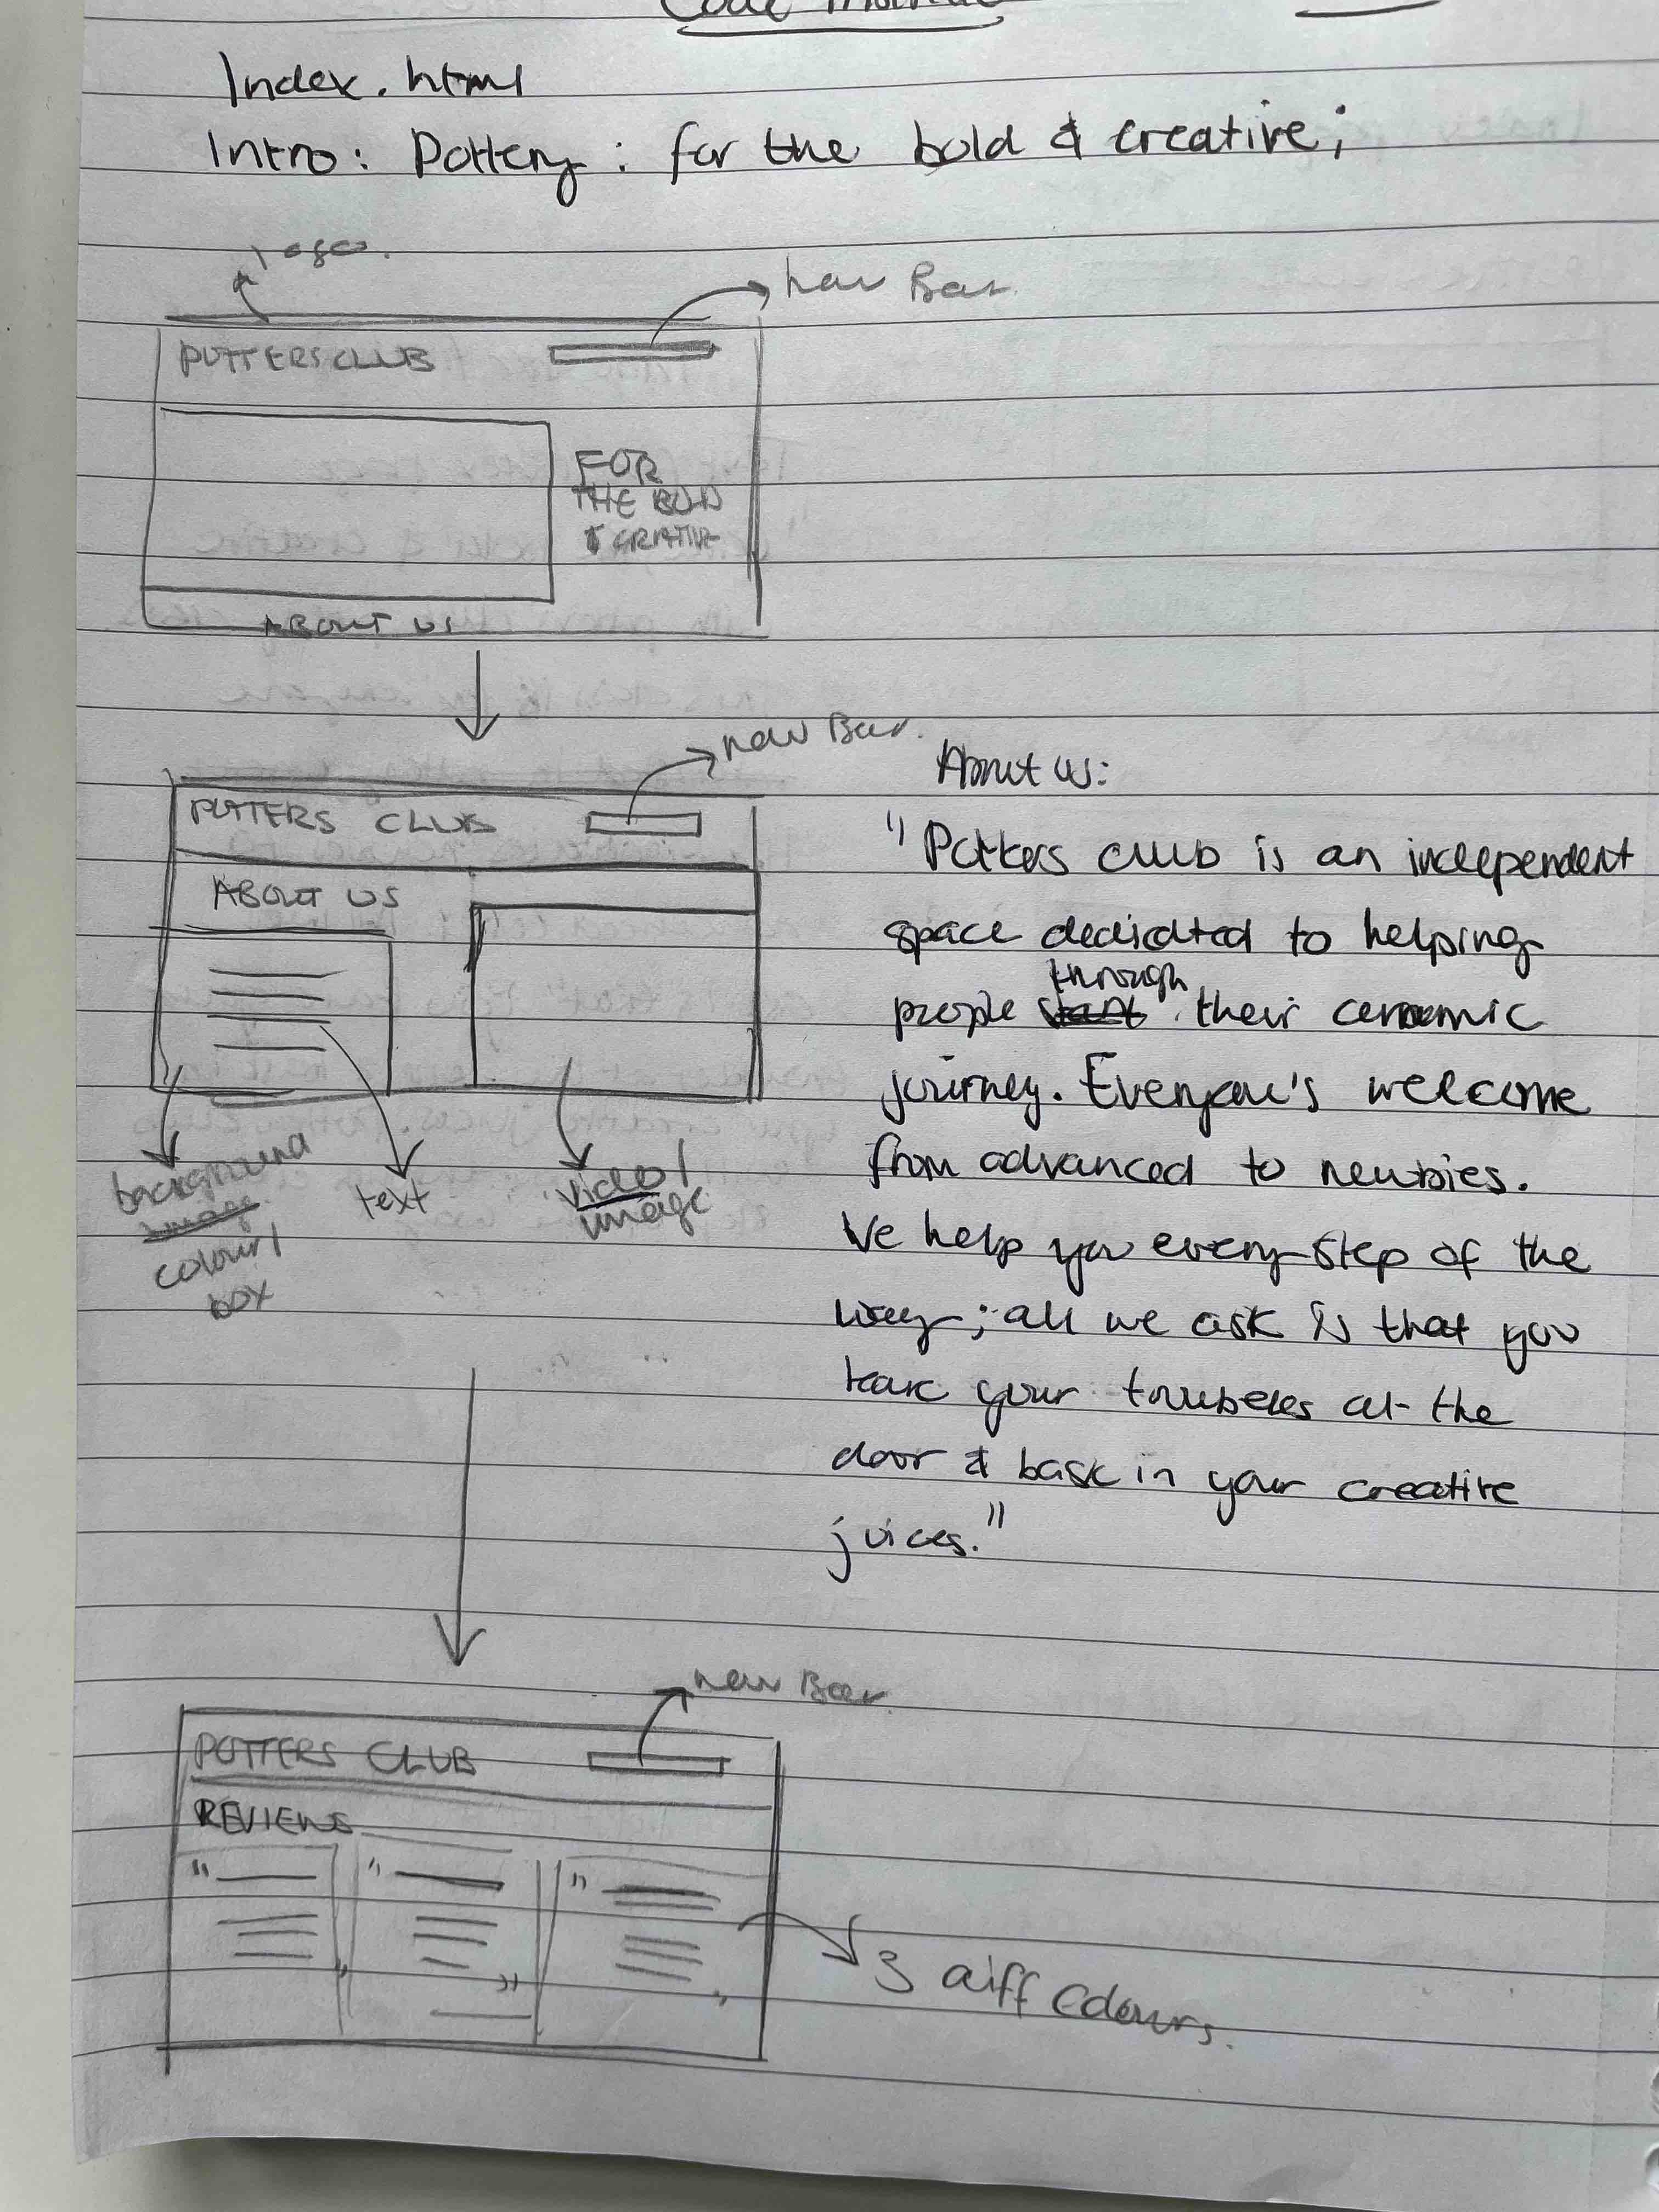 Code
Index.html
Intro: Pottery: for the bold & creative;
logo.
nav Bar.
POTTERSCLUB
FOR
THE BOLD
& CREATIVE
ABOUT US
nav Bar.
POTTERS CLUB
ABOUT US
background
image
colour/
box
text
video/
image
About us:
"Potters club is an independent
space dedicated to helping
through
people start their ceramic
journey. Everyone's welcome
from advanced to newbies.
We help you every step of the
way; all we ask is that you
leave your troubles at the
door & bask in your creative
juices."
nav Bar
POTTERS CLUB
REVIEWS
3 diff colours.